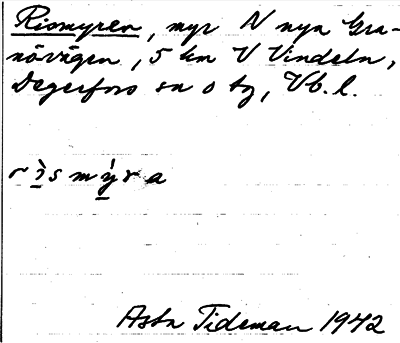 Rismyren, myr N nya Gra-
növägen, 5 km V Vindeln,
Degerfors sn o tg, Vb. l.
rìsmýra
Asta Tideman 1942